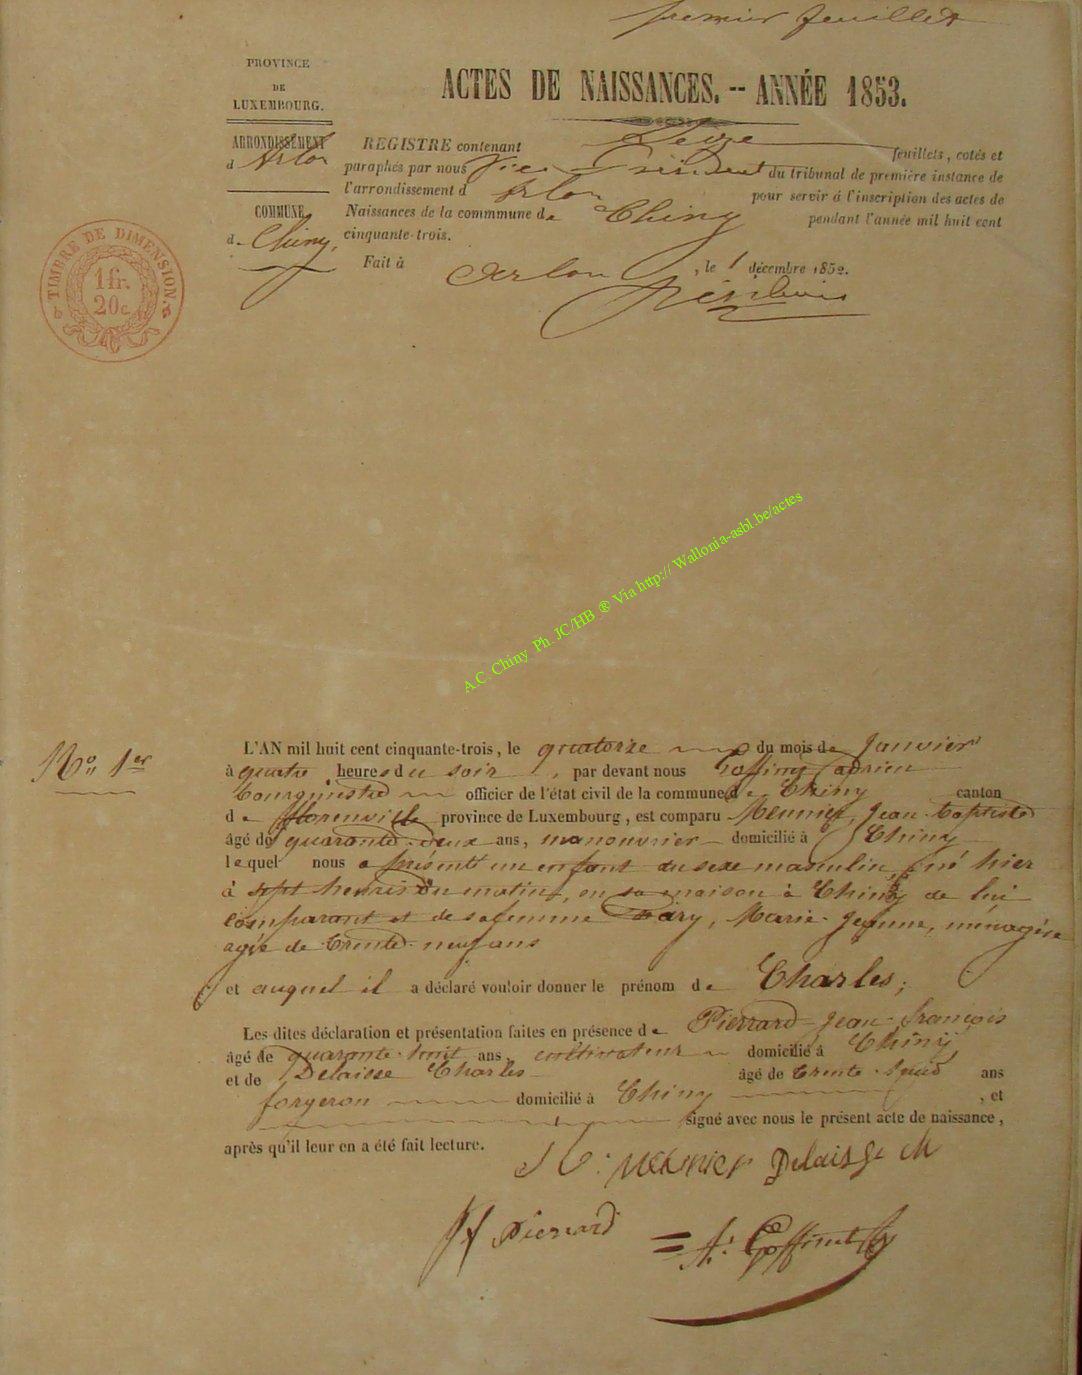 premier feuillet
PROVINCE
DE
LUXEMBOURG.
ACTES DE NAISSANCES. -- ANNÉE 1853.
ARRONDISSEMENT
d'Arlon
COMMUNE
de Chiny,
REGISTRE contenant feuillets, cotés et
paraphés par nous Vice Président du tribunal de première instance de
l'arrondissement d'Arlon pour servir á l'inscription des actes de
Naissances de la commmune de Chiny pendant l'année mil huit cent
cinquante-trois.
Fait à Arlon , le 1 décembre 1852.
TIMBRE DE DIMENSION.
1 fr.
20 c.
A.C Chiny Ph JC/HB ® Via http:// Wallonia-asbl.be/actes
No. 1er
L'AN mil huit cent cinquante-trois, le quatorze du mois de Janvier
à quatre heures du soir , par devant nous Goffinet adrien
Bourgmestre officier de l'état civil de la commune de Chiny canton
de florenville province de Luxembourg, est comparu Meunier, Jean-Baptiste
âgé de quarante-deux ans, manouvrier domicilié à Chiny
lequel nous a présenté un enfant du sexe masculin, né hier
à sept heures du matin, en sa maison à Chiny de lui
comparant et de sa femme Mary, Marie-Jeanne, ménagère
agée de trente-neuf ans
et auquel il a déclaré vouloir donner le prénom de Charles;
Les dites déclaration et présentation faites en présence de Pierrard Jean-françois
âgé de quarante-huit ans, cultivateur domicilié à Chiny,
et de Delaisse Charles âgé de trente- ans
forgeron domicilié à Chiny , et
signé avec nous le présent acte de naissance,
après qu'il leur en a été fait lecture.
Meunier Delaisse
Jf Pierrard A. Goffinet